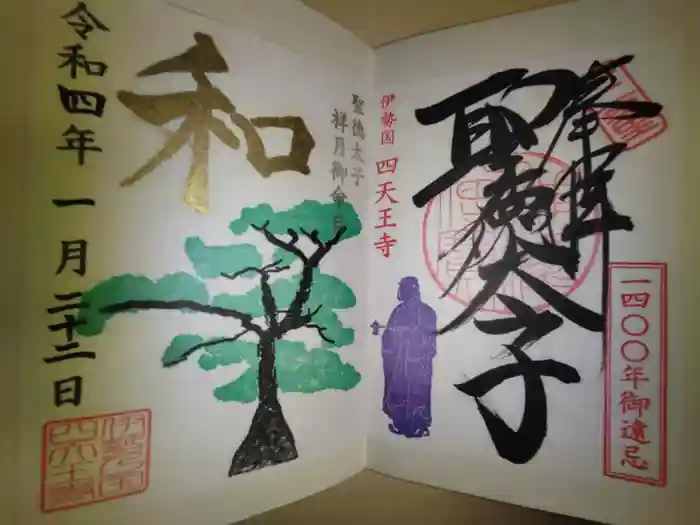 奉拝
聖徳太子
一四〇〇年御遠忌
伊勢国 四天王寺
聖徳太子
祥月御命日
和
令和四年 一月二十二日